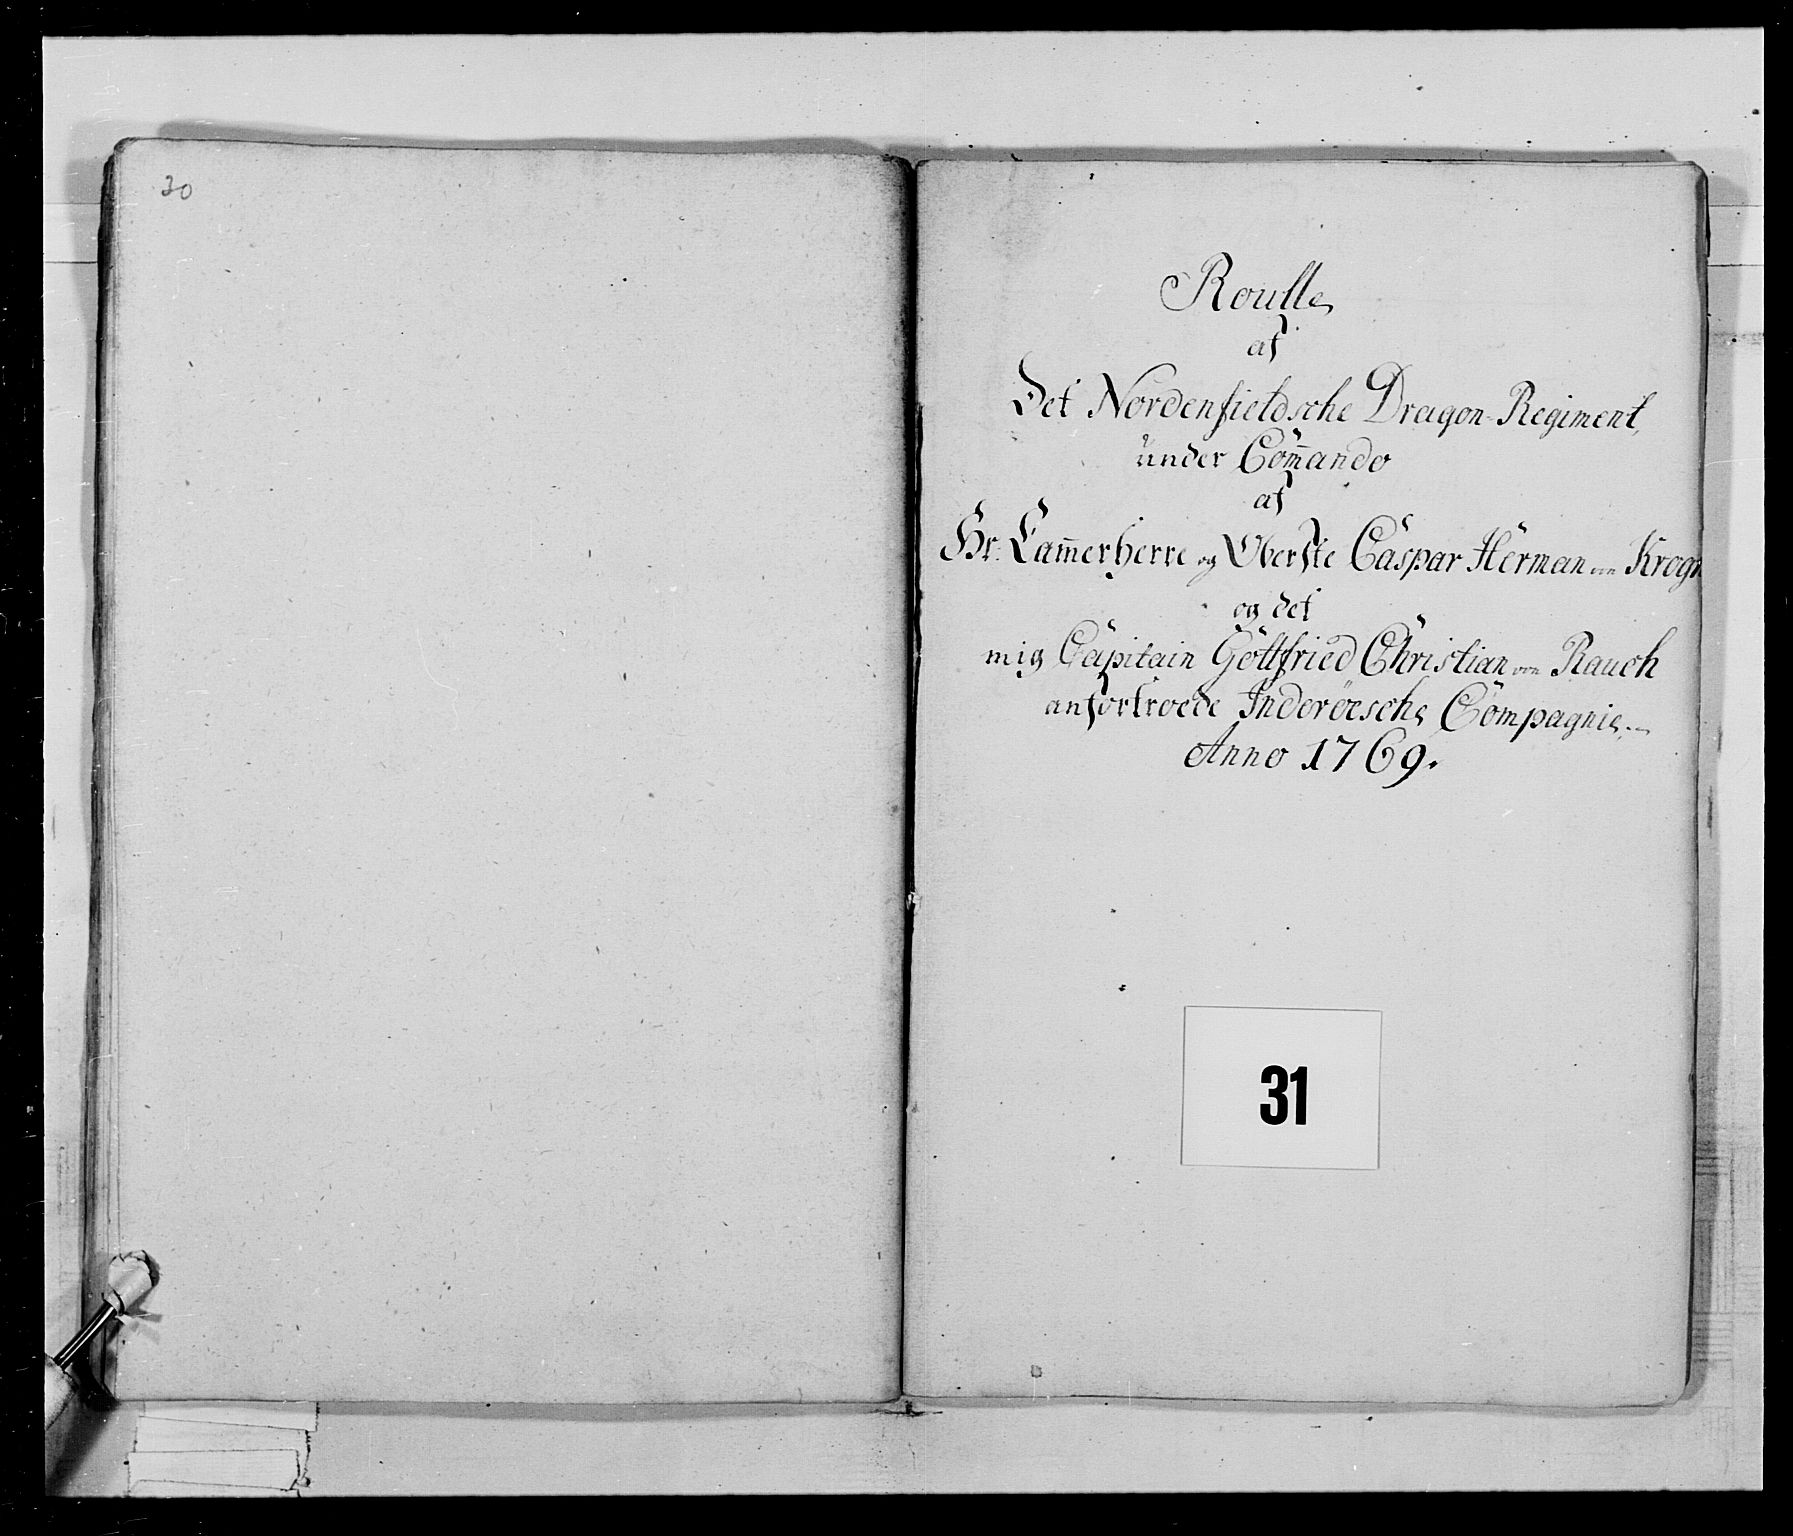 30
Roulle
af
Det Nordenfieldsche Dragon-Regiment,
under Com̄ando
af
Hr: Cam̄erherre og Oberste Caspar Herman von Krogh
og det
mig Capitain Gottfried Christian von Rauch
anfortroede Inderöesche Compagnie.
Anno 1769.
31